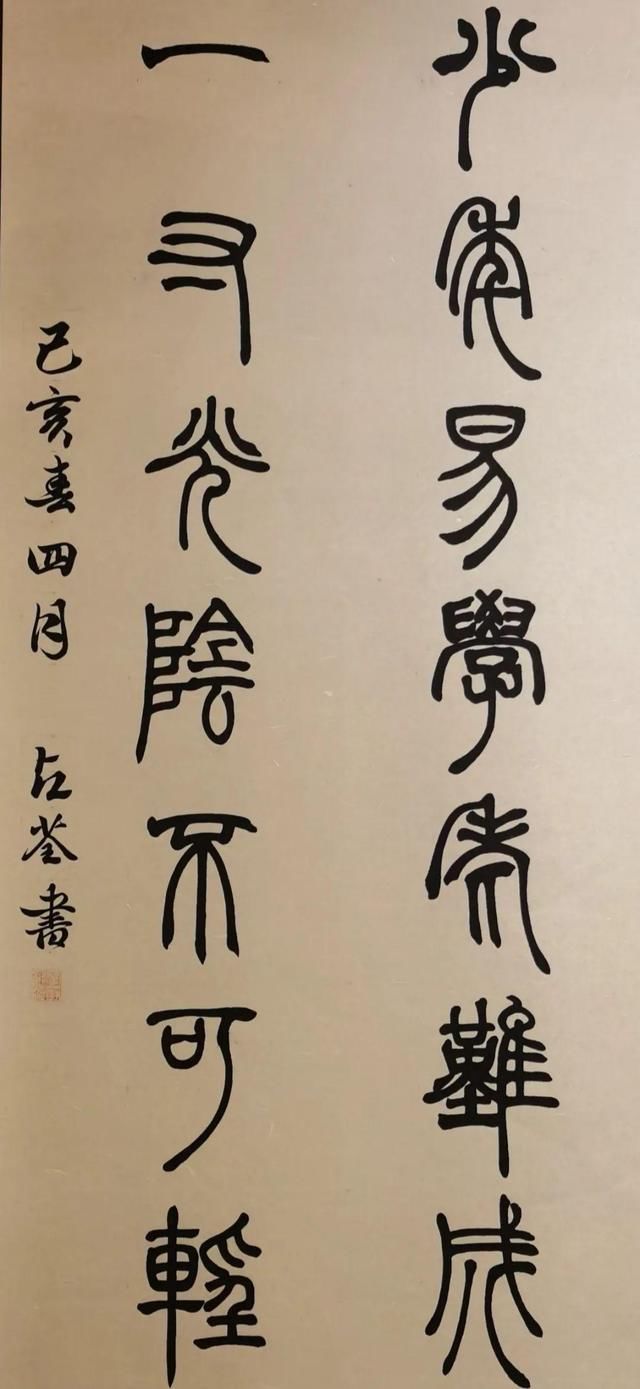 少年易學老難成
一寸光陰不可輕
己亥春四月 荃書